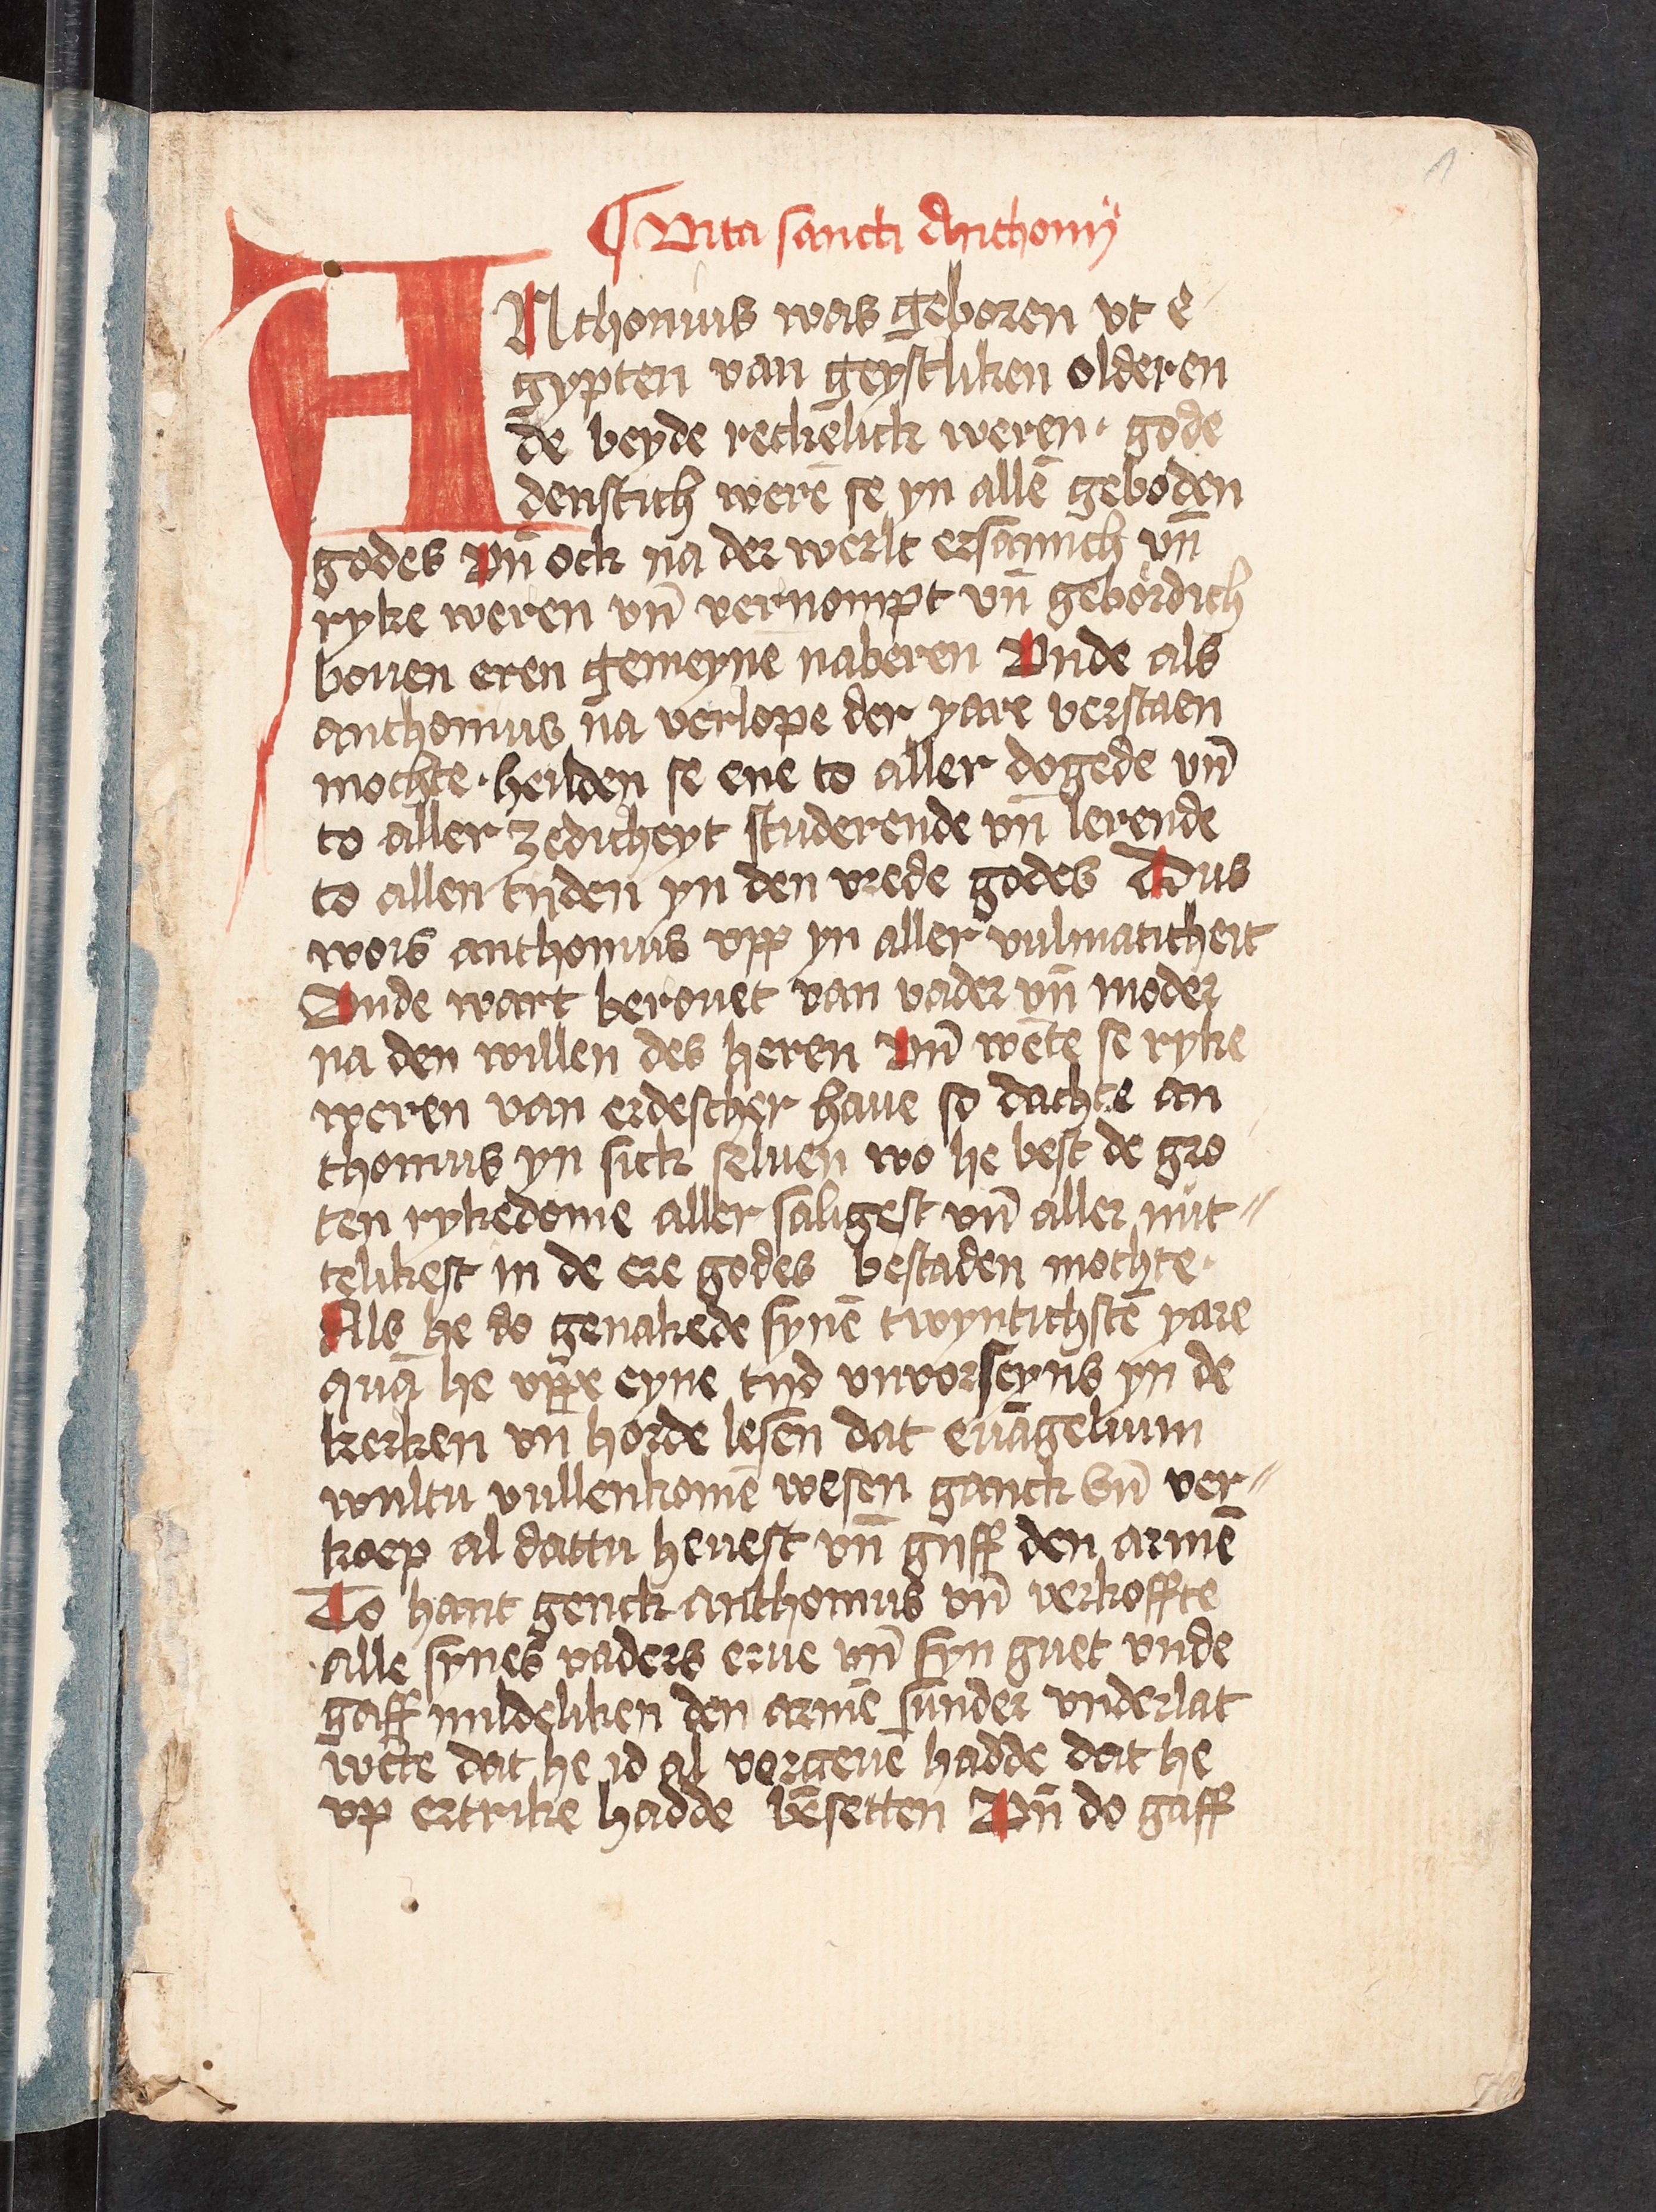 1
¶ Vita sancti Anthonij
ANthonius was geboren vt e
gypten van geystliken olderen
de beyde reckelick weren · gode
denstich werē se yn allē geboden
godes Vn̄ ock na der werlt ersamich vn̄
ryke weren vn̄ vernompt vn̄ gebördich
bouen eren gemeyne naberen Vnde als
anthonius na verlope der yare verstaen
mochte · heilden se ene to aller dogede vn̄
to aller zedicheyt studerende vn̄ lerende
to allen tyden yn den vrede godes Dus
wois anthonius vpp yn aller vulmaticheit
Vnde wart berouet van vader vn̄ moder
na den willen des heren Vn̄ wēte se ryke
weren van erdescher haue so dachte an
thonius yn sick seluen wo he best de gro
ten rykedome aller saligest vn̄ aller nüt
telikest in de ere godes bestaden mochte ·
Als he do genakede synē twyntichstē yare
quā he vppe eyne tyd vnvorseyns yn de
kerken vn̄ horde lesen dat euāgelium
wultu vullenkomē wesen ganck vn̄ ver
koep al dattu heuest vn̄ gyff den armē
To hant genck anthonius vn̄ verkoffte
alle synes vaders erue vn̄ syn guet vnde
gaff mildeliken den armē sunder vnderlat
wēte dat he id al vorgeuē hadde dat he
vp ertrike hadde besetten Vn̄ do gaff